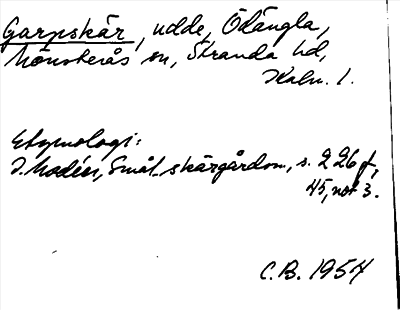 Garpskär, udde, Ödängla,
Mönsterås sn, Stranda hd,
Kalm. l.
Etymologi:
J. Modéer, Smål. skärgården, s. 226 f,
45, not 3.
C.B. 1954